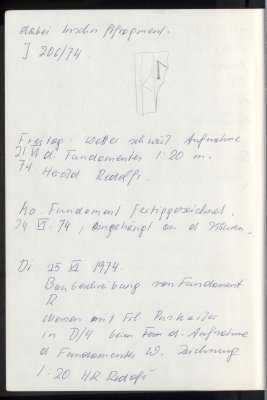 dabei Inschriftfragment.
I 206/74.
Freitag. Wetter schwül Aufnahme
21. VI d. Fundamentes 1:20 m.
74. Herold Redolfi.
Mo. Fundament fertiggezeichnet.
24. VI. 74, angehängt an d
Di 25 VI 1974.
Baubeschreibung von Fundament
R
Messen mit Frl
in D/4 beim d. Aufnahme
d Fundamentes W. Zeichnung
1:20 HR Redolfi